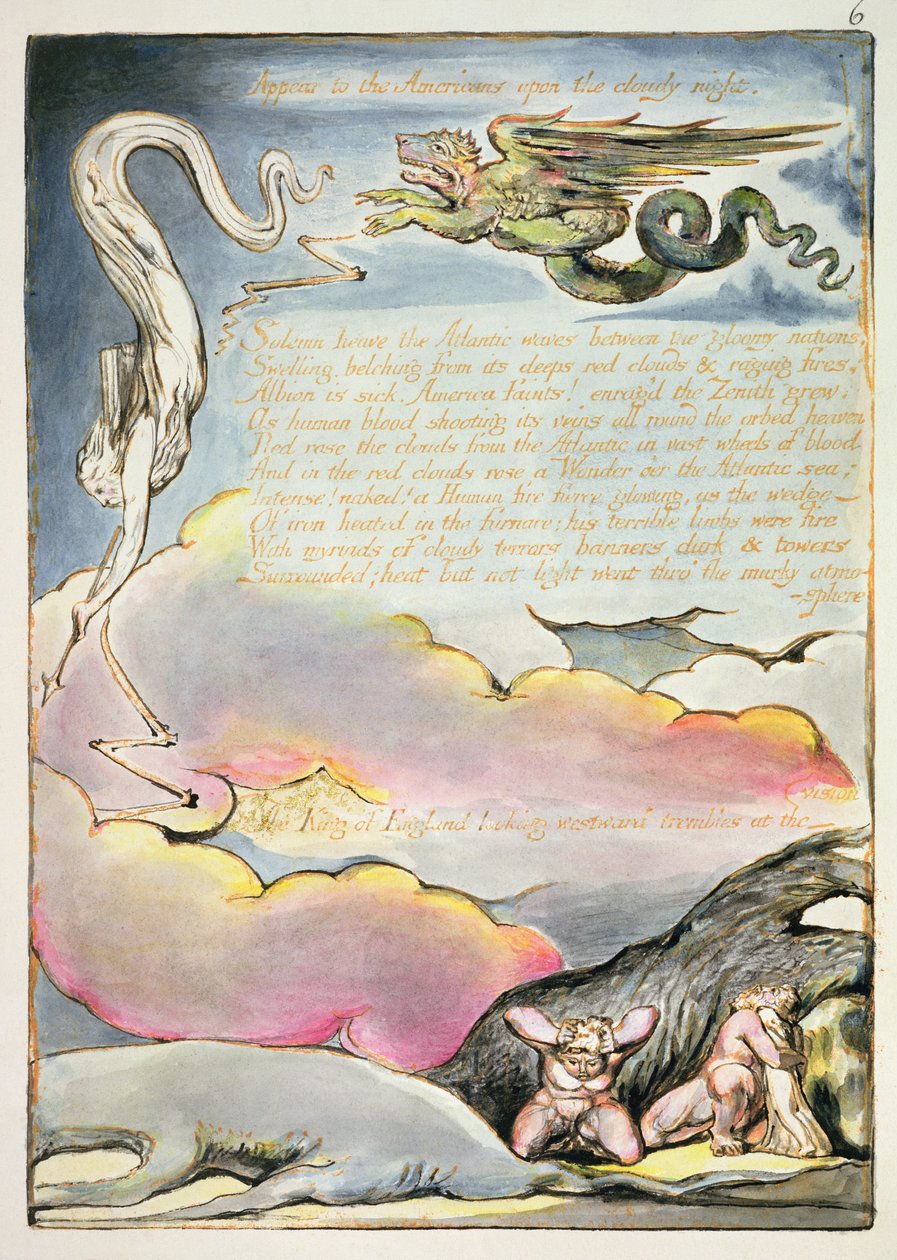 6
Appear to the Americans upon the cloudy night.
Solemn heave the Atlantic waves between the gloomy nations,
Swelling, belching from its deeps red clouds & raging fires.
Albion is sick. America faints! enrag'd the Zenith grew.
As human blood shooting its veins all round the orbed heaven
Red rose the clouds from the Atlantic in vast wheels of blood
And in the red clouds rose a Wonder o'er the Atlantic sea;
Intense! naked! a Human fire fierce glowing, as the wedge
Of iron heated in the furnace; his terrible limbs were fire
With myriads of cloudy terrors banners dark & towers
Surrounded; heat but not light went thro' the murky atmo-
-sphere
vision
The King of England looking westward trembles at the